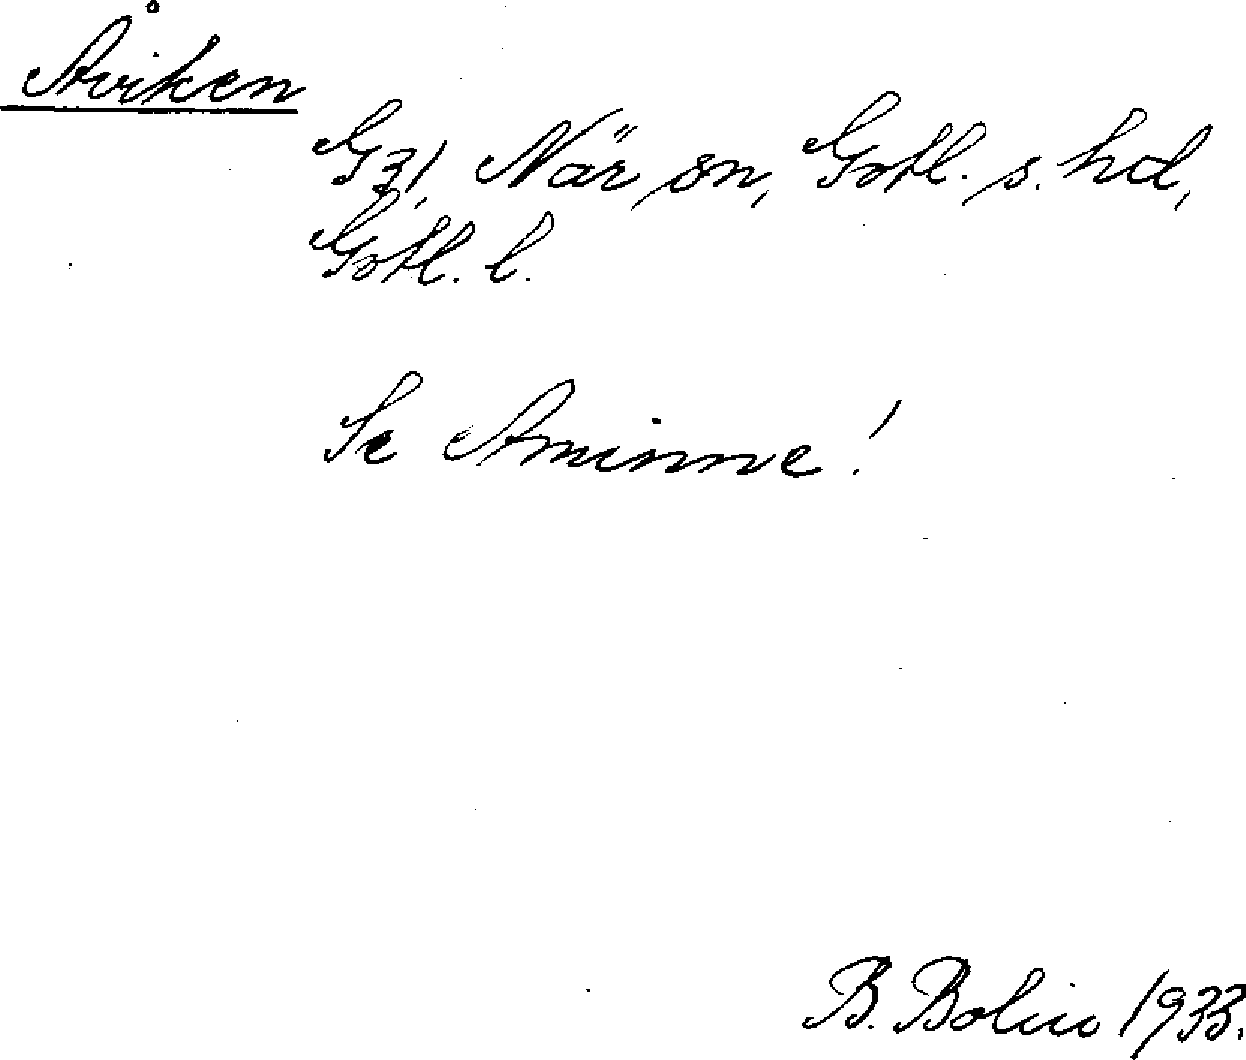 Åviken
Gz!, När sn, Gotl. s. hd,
Gotl. l.
Se Aminne!
B. Bolin 1933.